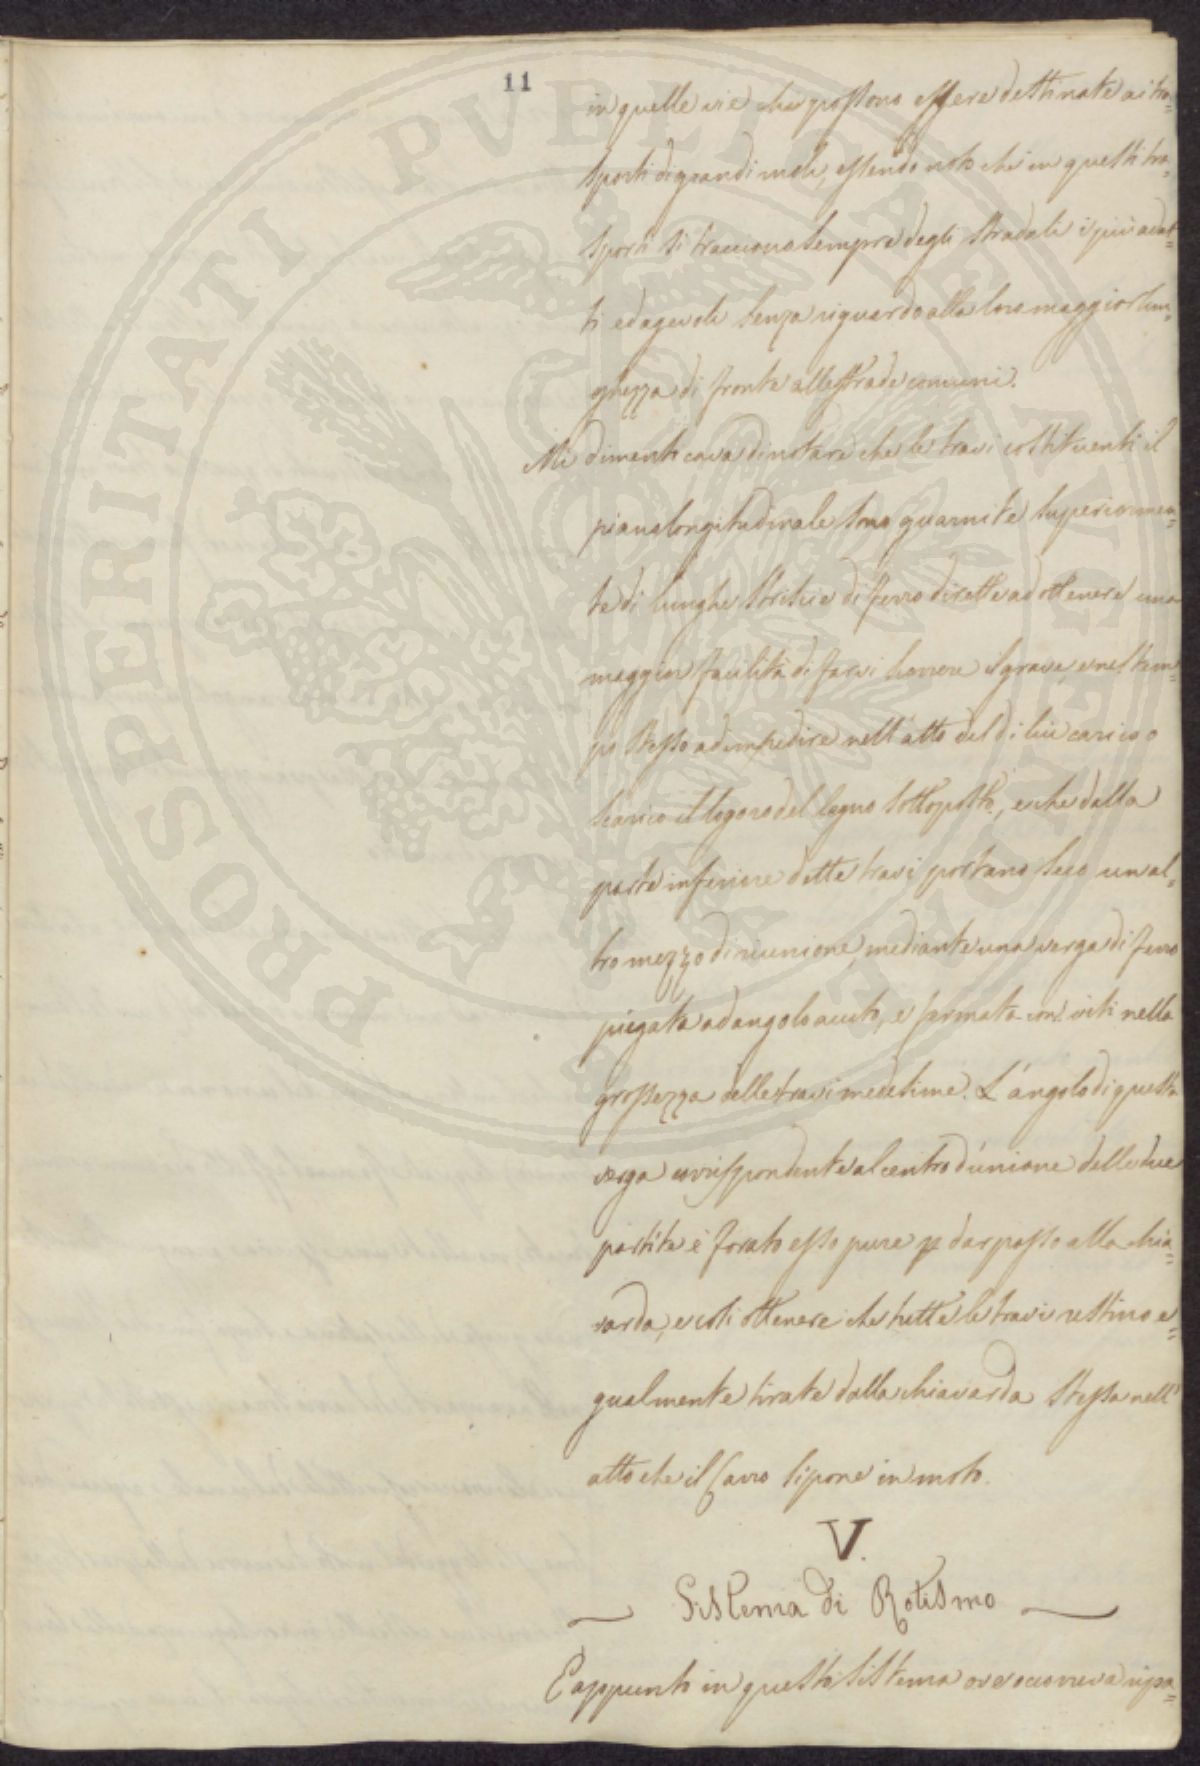 11
in quelle vie che possono essere destinate ai tra=
sporti di grandi moli, essendo noto che in questi tra=
sporti si tracciano sempre degli stradali i più adat=
ti ed agevoli senza riguardo alla loro maggior lun=
ghezza di fronte alle strade comuni.
Mi dimenticava di notare che le travi costituenti il
piano longitudinale sono guarnite superiormen=
te di lunghe striscie di ferro dirette ad ottenere una
maggior facilità di farvi scorrere il grave, e nel tem=
po stesso ad impedire nell'atto del di lui carico o
scarico il logoro del legno sottoposto, e che dalla
parte inferiore dette travi portano seco un al=
tro mezzo di riunione, mediante una verga di ferro
piegata ad angolo acuto, e fermata con viti nella
grossezza delle travi medesime. L'angolo di questa
verga corrispondente al centro d'unione delle due
partite è forato esso pure p dar passo alla chia=
varda, e così ottenere che tutte le travi restino e=
gualmente tirate dalla chiavarda stessa nell'
atto che il Carro si pone in moto.
V.
Sistema di Rotismo
E appunto in questo sistema ove occorreva ripa=
PROSPERITATI PVBLICAE AVGENDAE